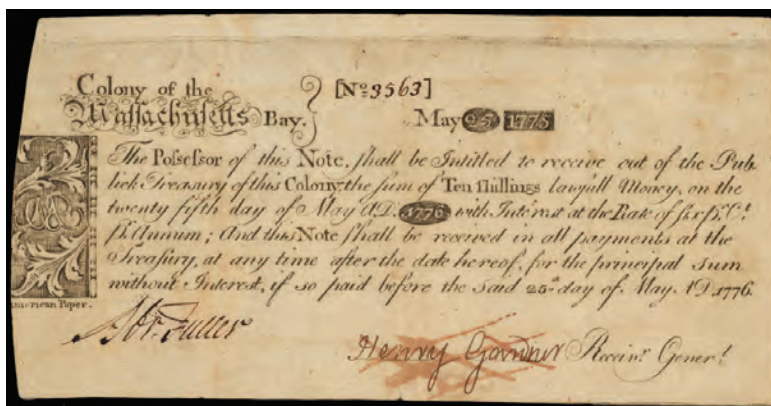 Colony of the
Massachusetts Bay.
[No. 3563]
May 25 1775
The Possessor of this Note, shall be Intitled to receive out of the Pub
lick Treasury of this Colony, the sum of Ten shillings lawfull Money, on the
twenty fifth day of May A.D. 1776 with Interest at the Rate of six Pr. Ct.
Pr. Annum; And this Note shall be received in all payments at the
Treasury, at any time after the date hereof, for the principal sum
without Interest, if so paid before the said 25th day of May. AD. 1776.
American Paper.
Abr. Fuller
Henry Gardner Receivr. Generl.